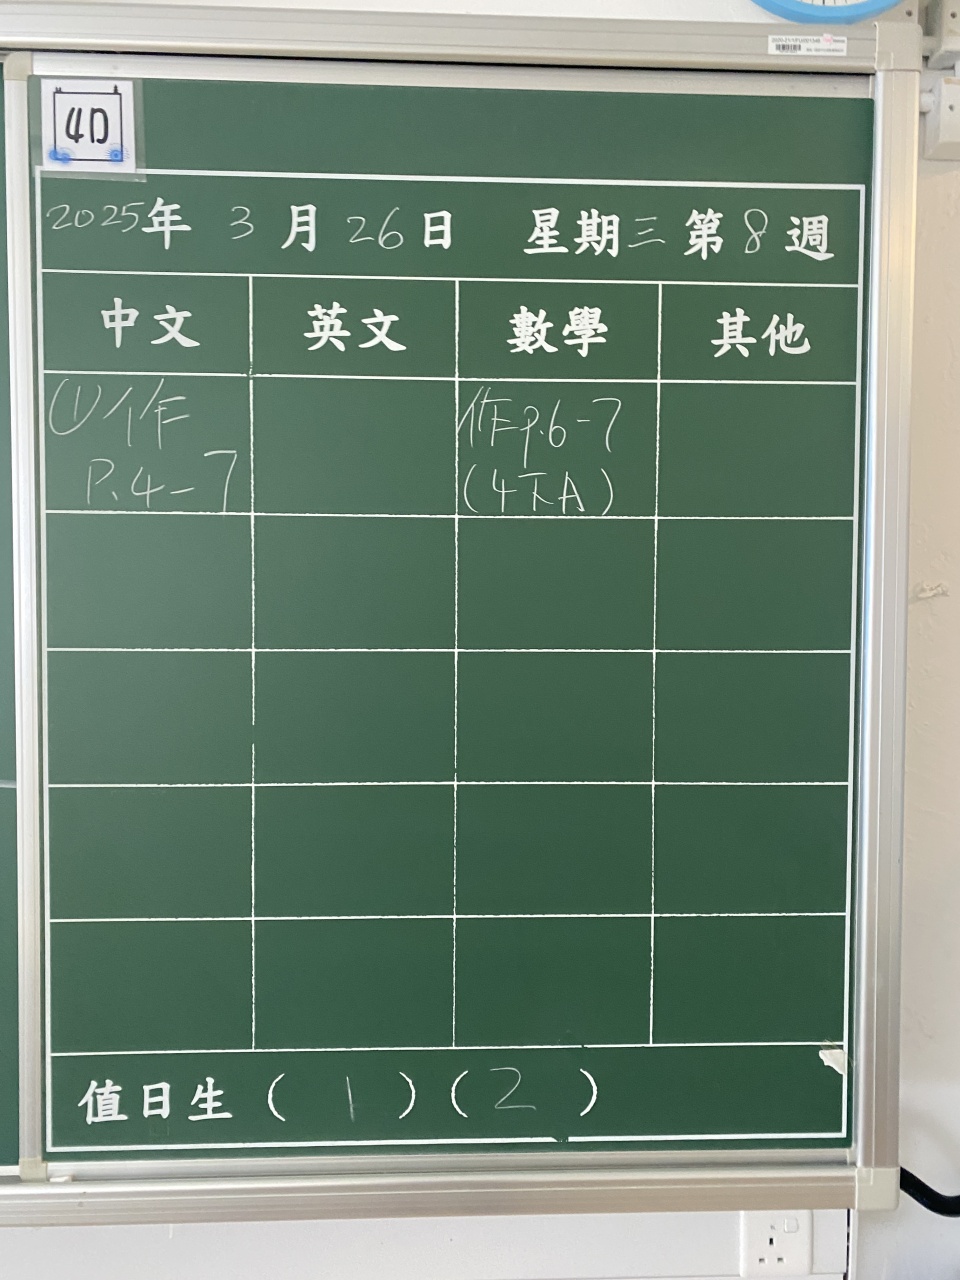 4D
2025年 3月26日 星期三 第8週
中文 英文 數學 其他
①个作 作P.6-7
P.4-7 (4下A)
值日生 ( 1 ) ( 2 )